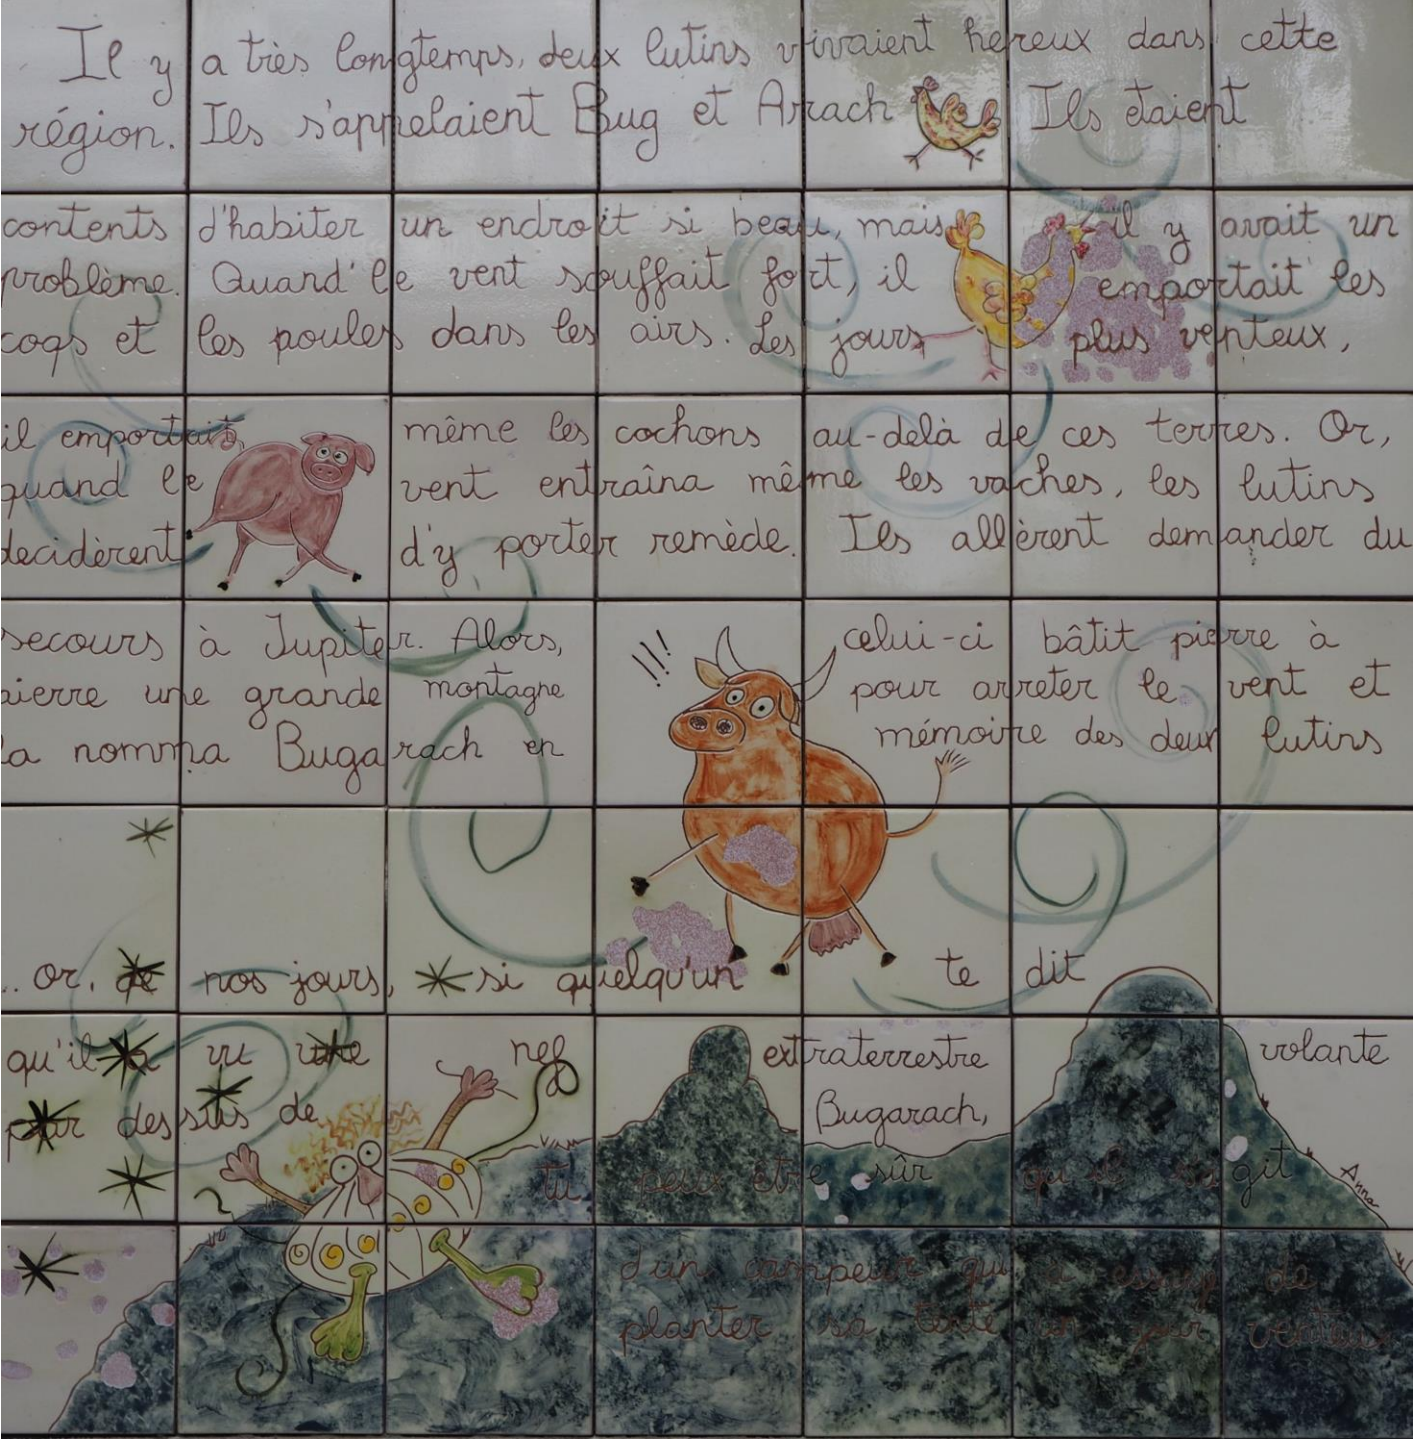 Il y a très longtemps, deux lutins vivaient hereux dans cette
région. Ils s'appelaient Bug et Arach Ils étaient
contents d'habiter un endroit si beau, mais il y avait un
problème. Quand le vent souffait fort, il emportait les
coqs et les poules dans les airs. Les jours plus venteux,
il emportait même les cochons au-delà de ces terres. Or,
quand le vent entraîna même les vaches, les lutins
decidèrent d'y porter remède. Ils allèrent demander du
secours à Jupiter. Alors, celui-ci bâtit pierre à
pierre une grande montagne pour arreter le vent et
la nomma Bugarach en mémoire des deux lutins
... or, de nos jours, si quelqu'un te dit
qu'il a vu une nef extraterrestre volante
par dessus de Bugarach,
tu peux être sûr qu'il s'agit
Anna
d'un campeur qui a essayé de
planter sa tente un jour venteux